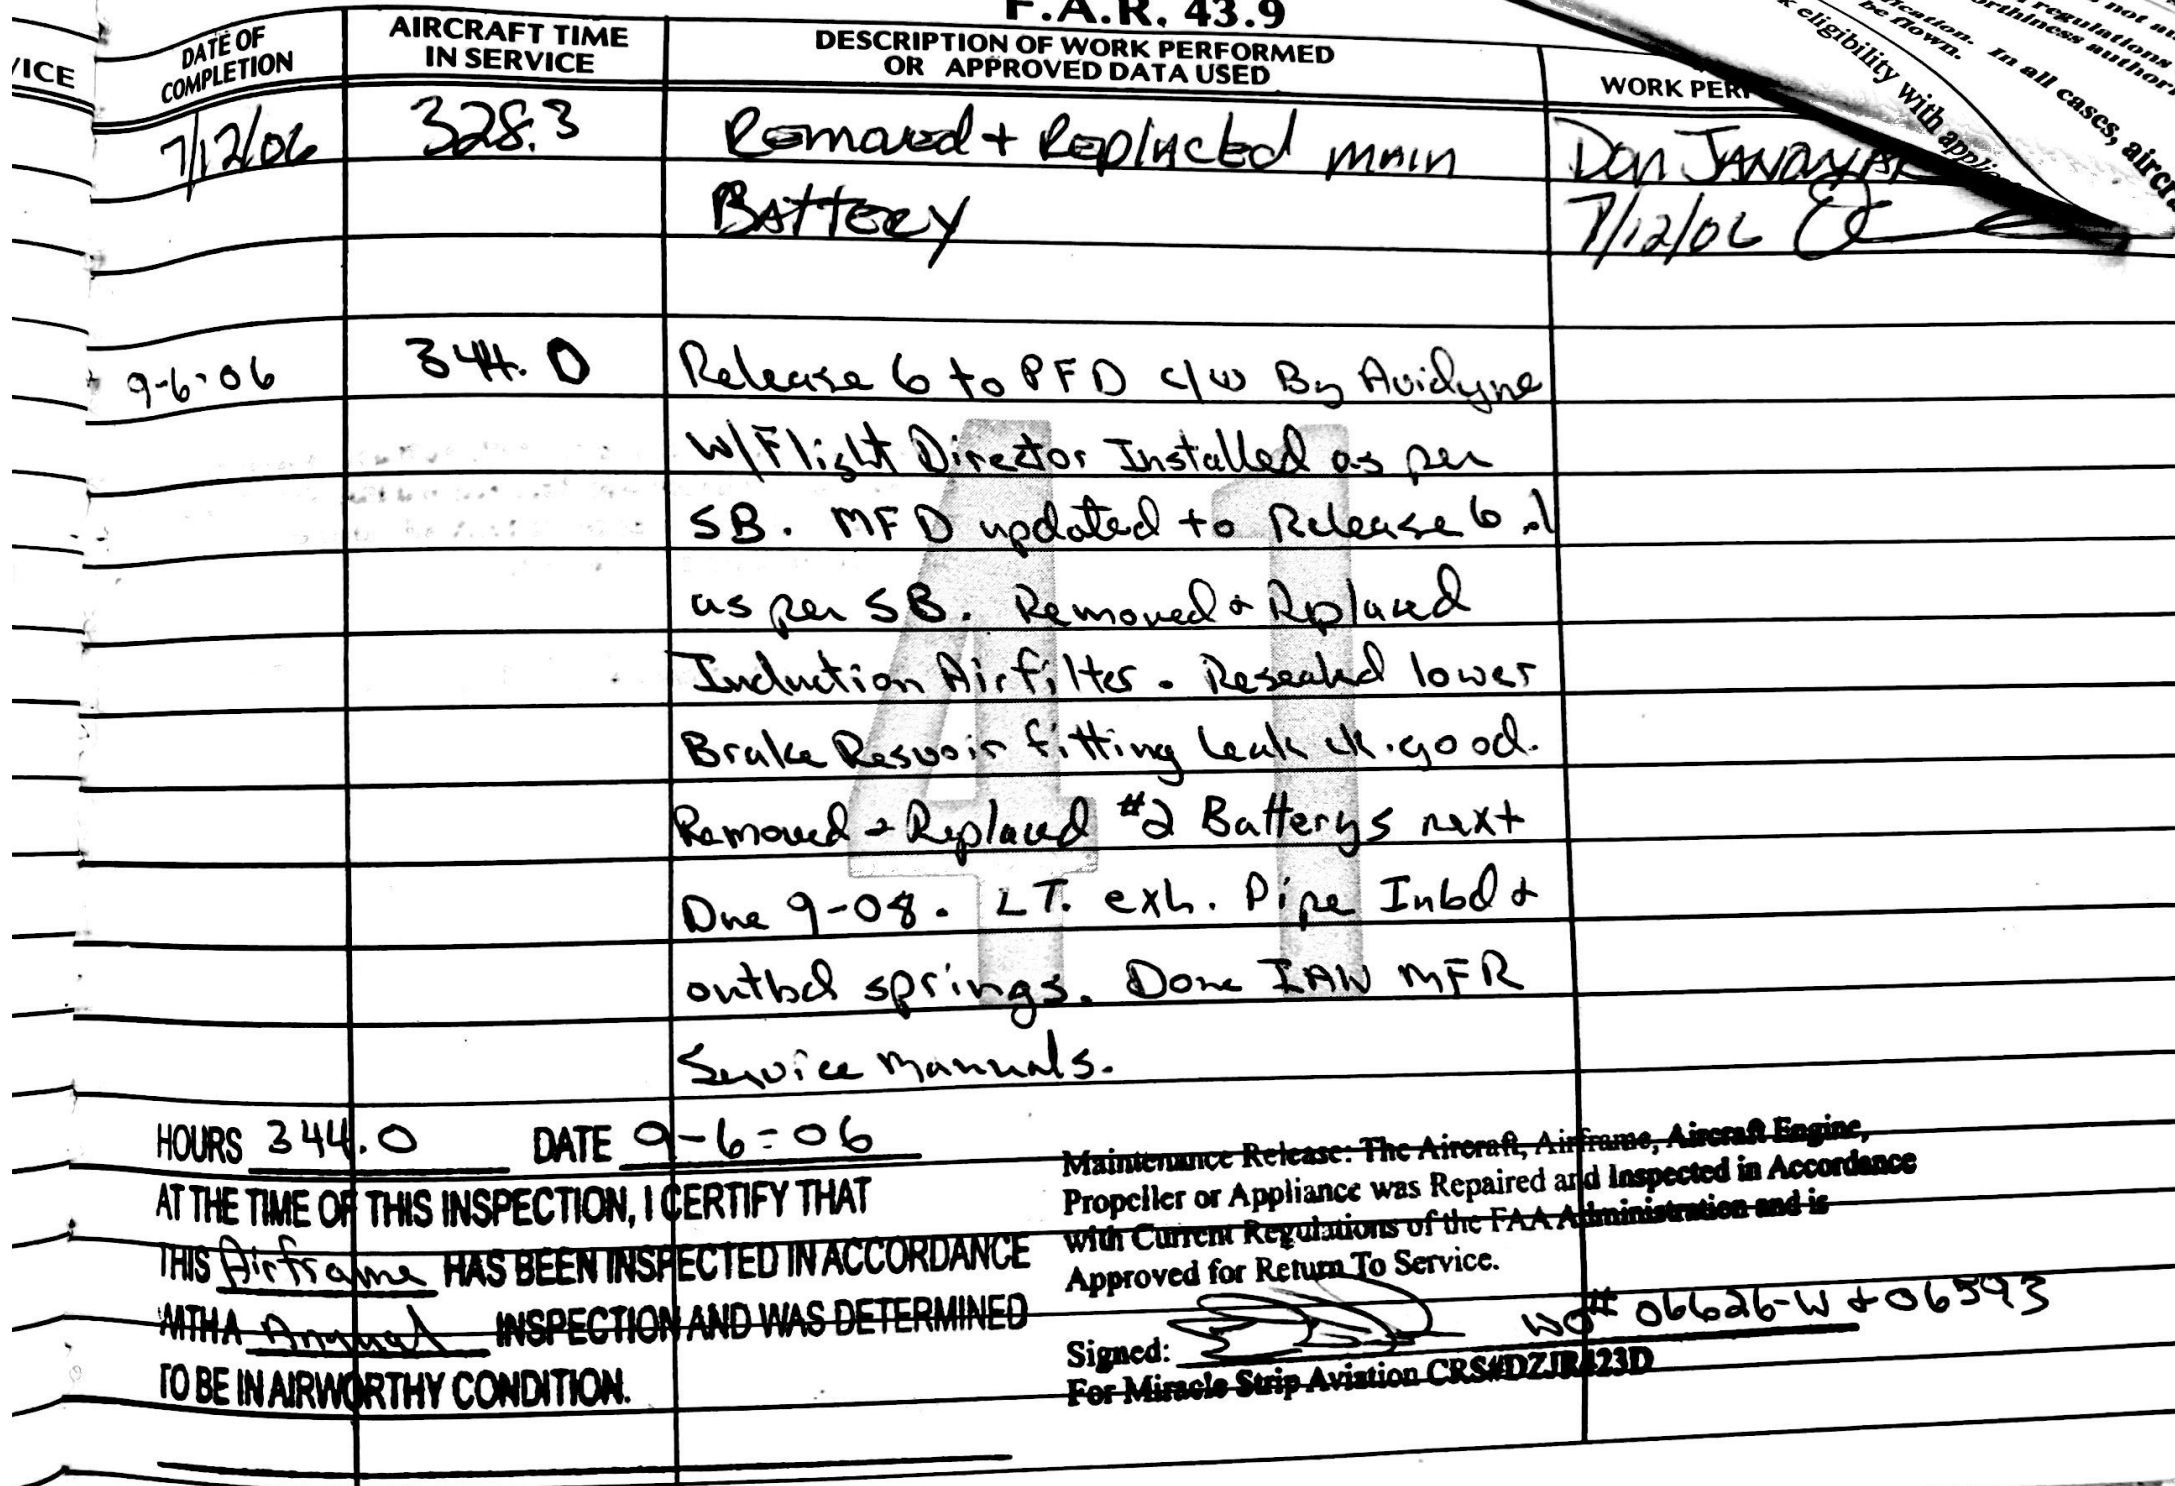 F.A.R. 43.9
VICE
DATE OF COMPLETION
AIRCRAFT TIME IN SERVICE
DESCRIPTION OF WORK PERFORMED OR APPROVED DATA USED
WORK PER
7/12/06 328.3 Removed + Replaced main Don
Battery 7/12/06
9-6-06 344.0 Release 6 to PFD c/w By Avidyne
W/Flight Director Installed as per
SB. MFD updated to Release 6
as per SB. Removed & Replaced
Induction Airfilter. Resealed lower
Brake Resvoir fitting Leak ck. good.
Removed & Replaced #2 Batterys next
Due 9-08. LT. exh. Pipe Inbd &
outbd springs. Done IAW MFR
Service Manuals.
41
HOURS 344.0 DATE 9-6-06
AT THE TIME OF THIS INSPECTION, I CERTIFY THAT
THIS Airframe HAS BEEN INSPECTED IN ACCORDANCE
WITH A Annual INSPECTION AND WAS DETERMINED
TO BE IN AIRWORTHY CONDITION.
Maintenance Release: The Aircraft, Airframe, Aircraft Engine,
Propeller or Appliance was Repaired and Inspected in Accordance
with Current Regulations of the FAA Administration and is
Approved for Return To Service.
Signed: WO# 06626-W & 06593
For Miracle Strip Aviation CRS#DZJR423D
not
regulations
eligibility with
be flown.
In all cases,